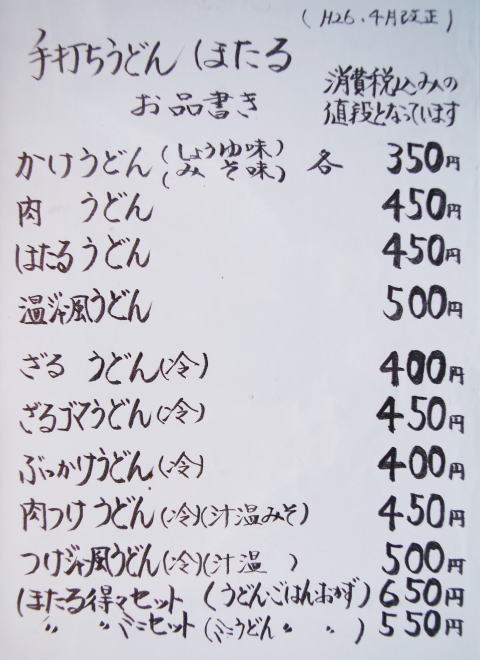 (H26.4月改正)
手打ちうどん ほたる
お品書き
消費税込み入の
値段となっています
かけうどん(しょうゆ味)(みそ味) 各 350円
肉 うどん 450円
ほたるうどん 450円
温ジャ風うどん 500円
ざる うどん(冷) 400円
ざるゴマうどん(冷) 450円
ぶっかけうどん(冷) 400円
肉つけうどん(冷)(汁温みそ) 450円
つけジャ風うどん(冷)(汁温 ) 500円
ほたる得々セット (うどん・ごはん・おかず) 650円
〃 〃 ミニセット (ミニうどん 〃 〃 ) 550円